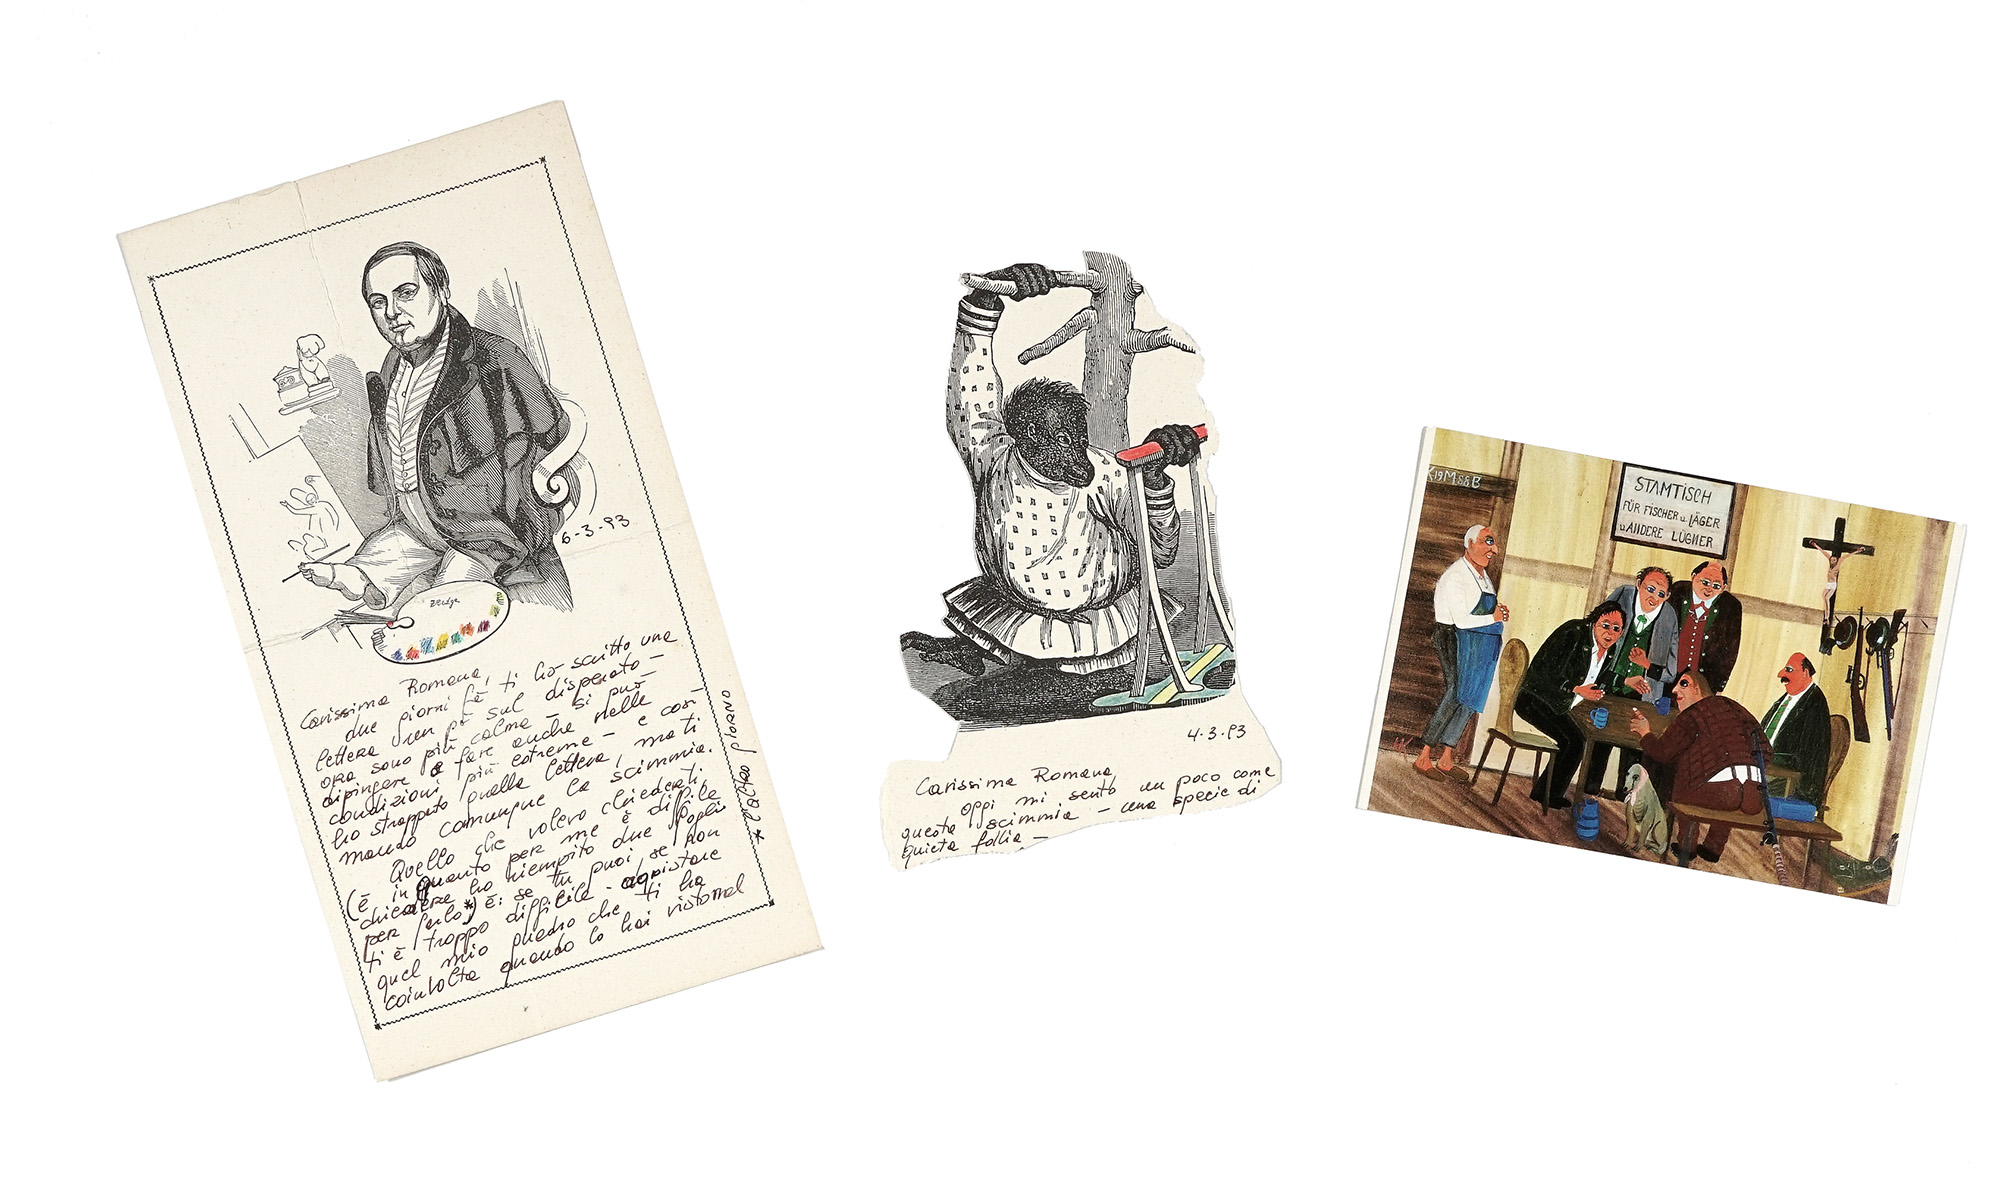 6-3-93
Carissima Romana,
due giorni fà ti ho scritto una
lettera un pò sul disperato -
ora sono più calma - si può
dipingere o fare anche nelle
condizioni più estreme - e così
ho strappato quella lettera, ma ti
mando comunque la scimmia.
Quello che volevo chiederti
(è in quanto per me è difficile
chiedere ho riempito due fogli
per farlo*) è: se tu puoi, se non
ti è troppo difficile - acquistare
quel mio quadro che ti ha
coinvolta quando lo hai visto nel
* l'altro giorno
4-3-93
Carissima Romana,
oggi mi sento un poco come
questa scimmia - una specie di
quieta follia -
K19M88B
STAMTISCH
FÜR FISCHER u. LÄGER
u. ANDERE LÜGNER